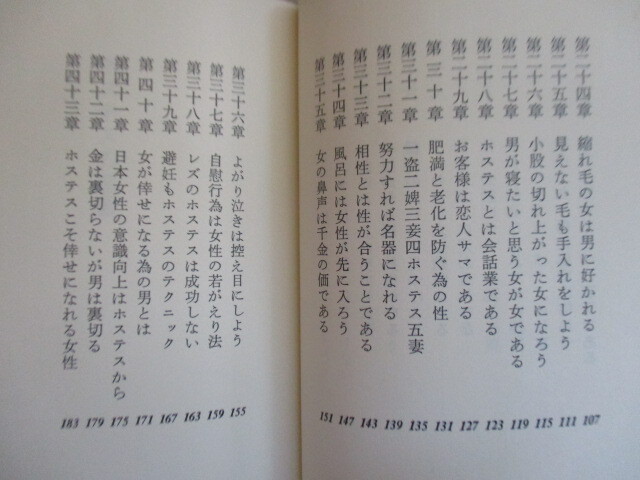 第二十四章 縮れ毛の女は男に好かれる 107
第二十五章 見えない毛も手入れをしよう 111
第二十六章 小股の切れ上がった女になろう 115
第二十七章 男が寝たいと思う女が女である 119
第二十八章 ホステスとは会話業である 123
第二十九章 お客様は恋人サマである 127
第三十章 肥満と老化を防ぐ為の性 131
第三十一章 一盗二婢三妾四ホステス五妻 135
第三十二章 努力すれば名器になれる 139
第三十三章 相性とは性が合うことである 143
第三十四章 風呂には女性が先に入ろう 147
第三十五章 女の鼻声は千金の価である 151
第三十六章 よがり泣きは控え目にしよう 155
第三十七章 自慰行為は女性の若がえり法 159
第三十八章 レズのホステスは成功しない 163
第三十九章 避妊もホステスのテクニック 167
第四十章 女が倖せになる為の男とは 171
第四十一章 日本女性の意識向上はホステスから 175
第四十二章 金は裏切らないが男は裏切る 179
第四十三章 ホステスこそ倖せになれる女性 183